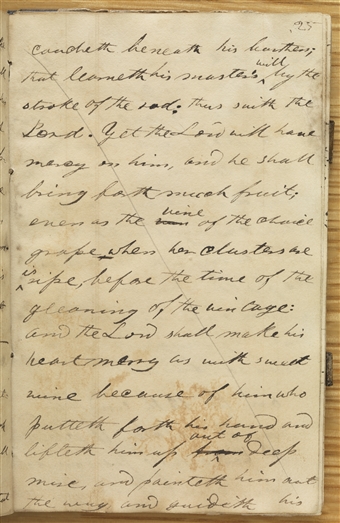 25
coucheth beneath his burthens;
that learneth his master's will by the
stroke of the rod; thus saith the
Lord. Yet the Lord will have
mercy on him, and he shall
bring forth much fruit;
even as the vine of the choice
grape when her clusters are
is ripe, before the time of the
gleaning of the vintage:
and the Lord shall make his
heart merry as with sweet
wine because of him who
putteth forth his hand and
lifteth him up out of deep
mire, and pointeth him out
the way, and guideth his